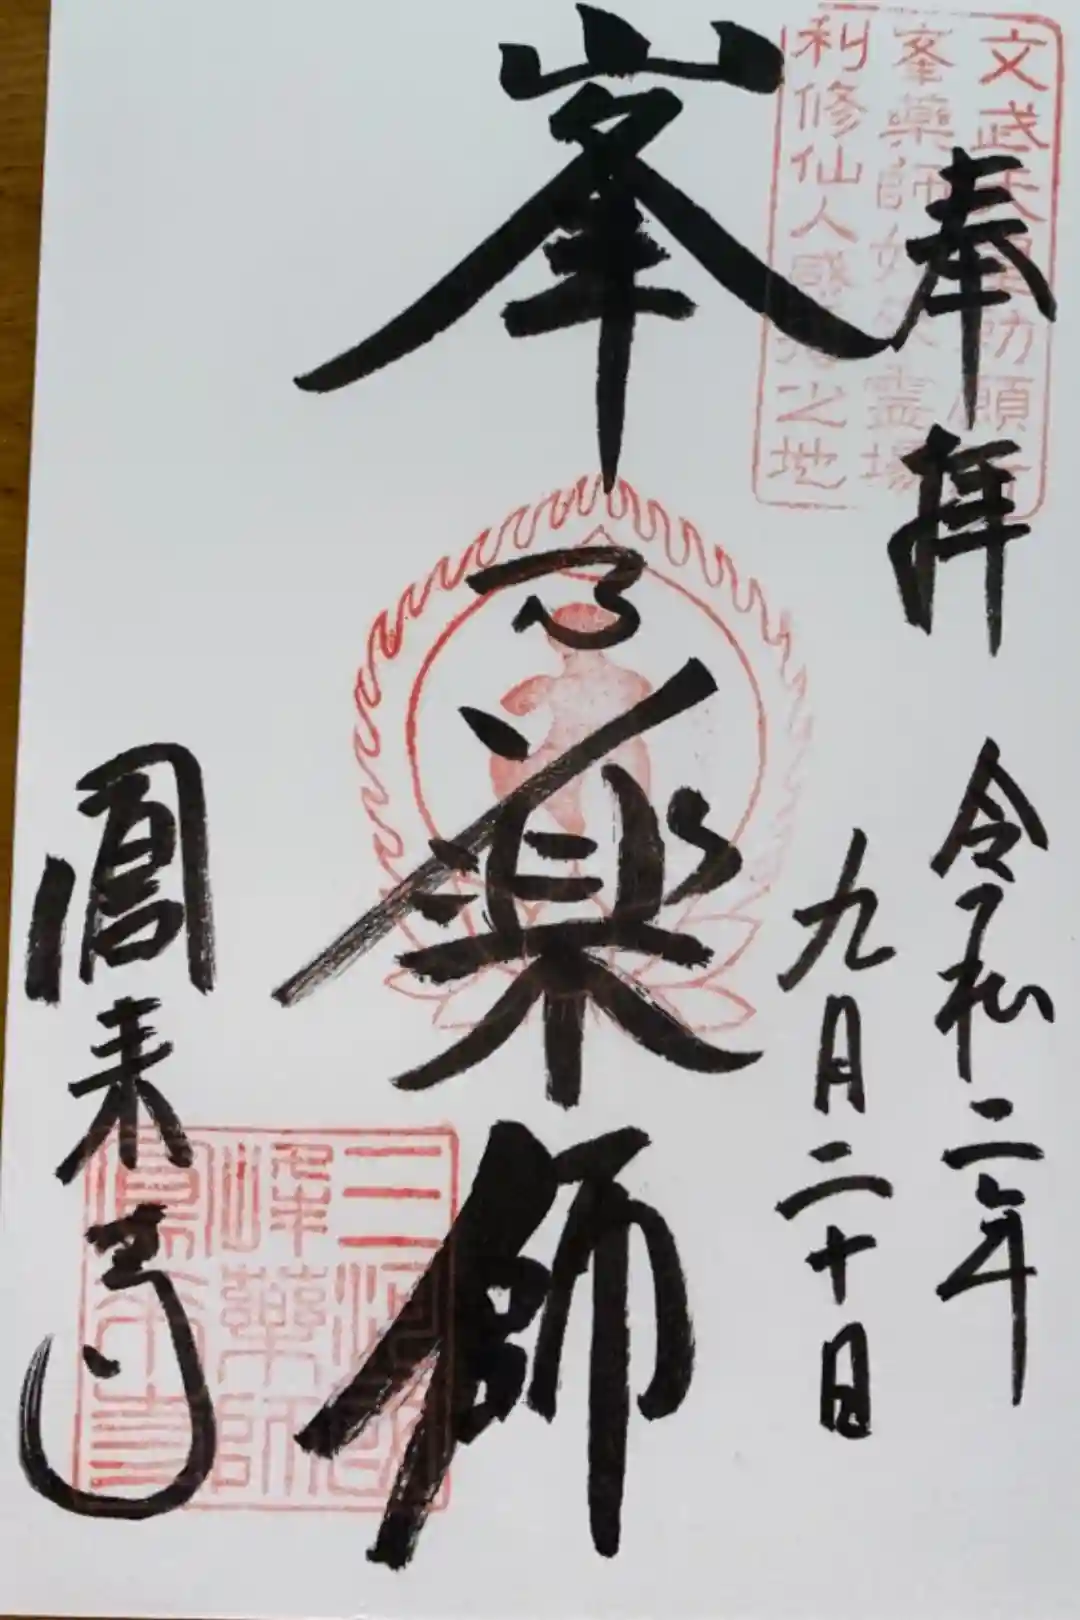 奉拝
令和二年
九月二十日
文武天皇勅願
峯藥師如來霊場
利修仙人感得之地
峯乃薬師
鳳来寺
三河國
峰藥師
鳳來寺